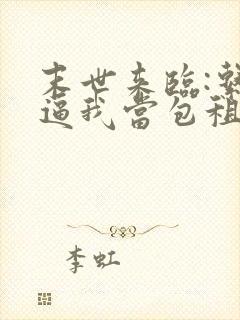 末世来临:
逼我当包租
李虹